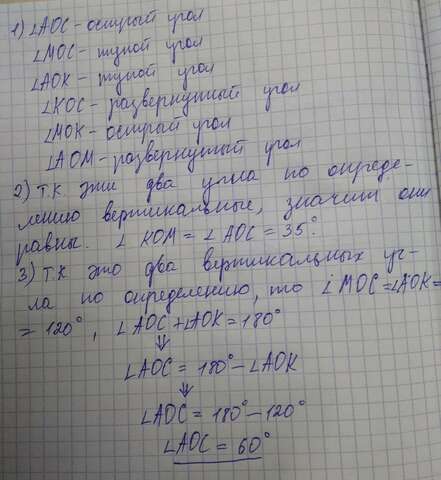 1) ∠AOC - острый угол
∠MOC - тупой угол
∠AOK - тупой угол
∠KOC - развернутый угол
∠MOK - острый угол
∠AOM - развернутый угол
2) т.к. эти два угла по опреде-
лению вертикальные, значит они
равны. ∠KOM = ∠AOC = 35°.
3) т.к это два вертикальных уг-
ла по определению, то ∠MOC = ∠AOK =
= 120°, ∠AOC + ∠AOK = 180°
⇓
∠AOC = 180° - ∠AOK
⇓
∠AOC = 180° - 120°
∠AOC = 60°